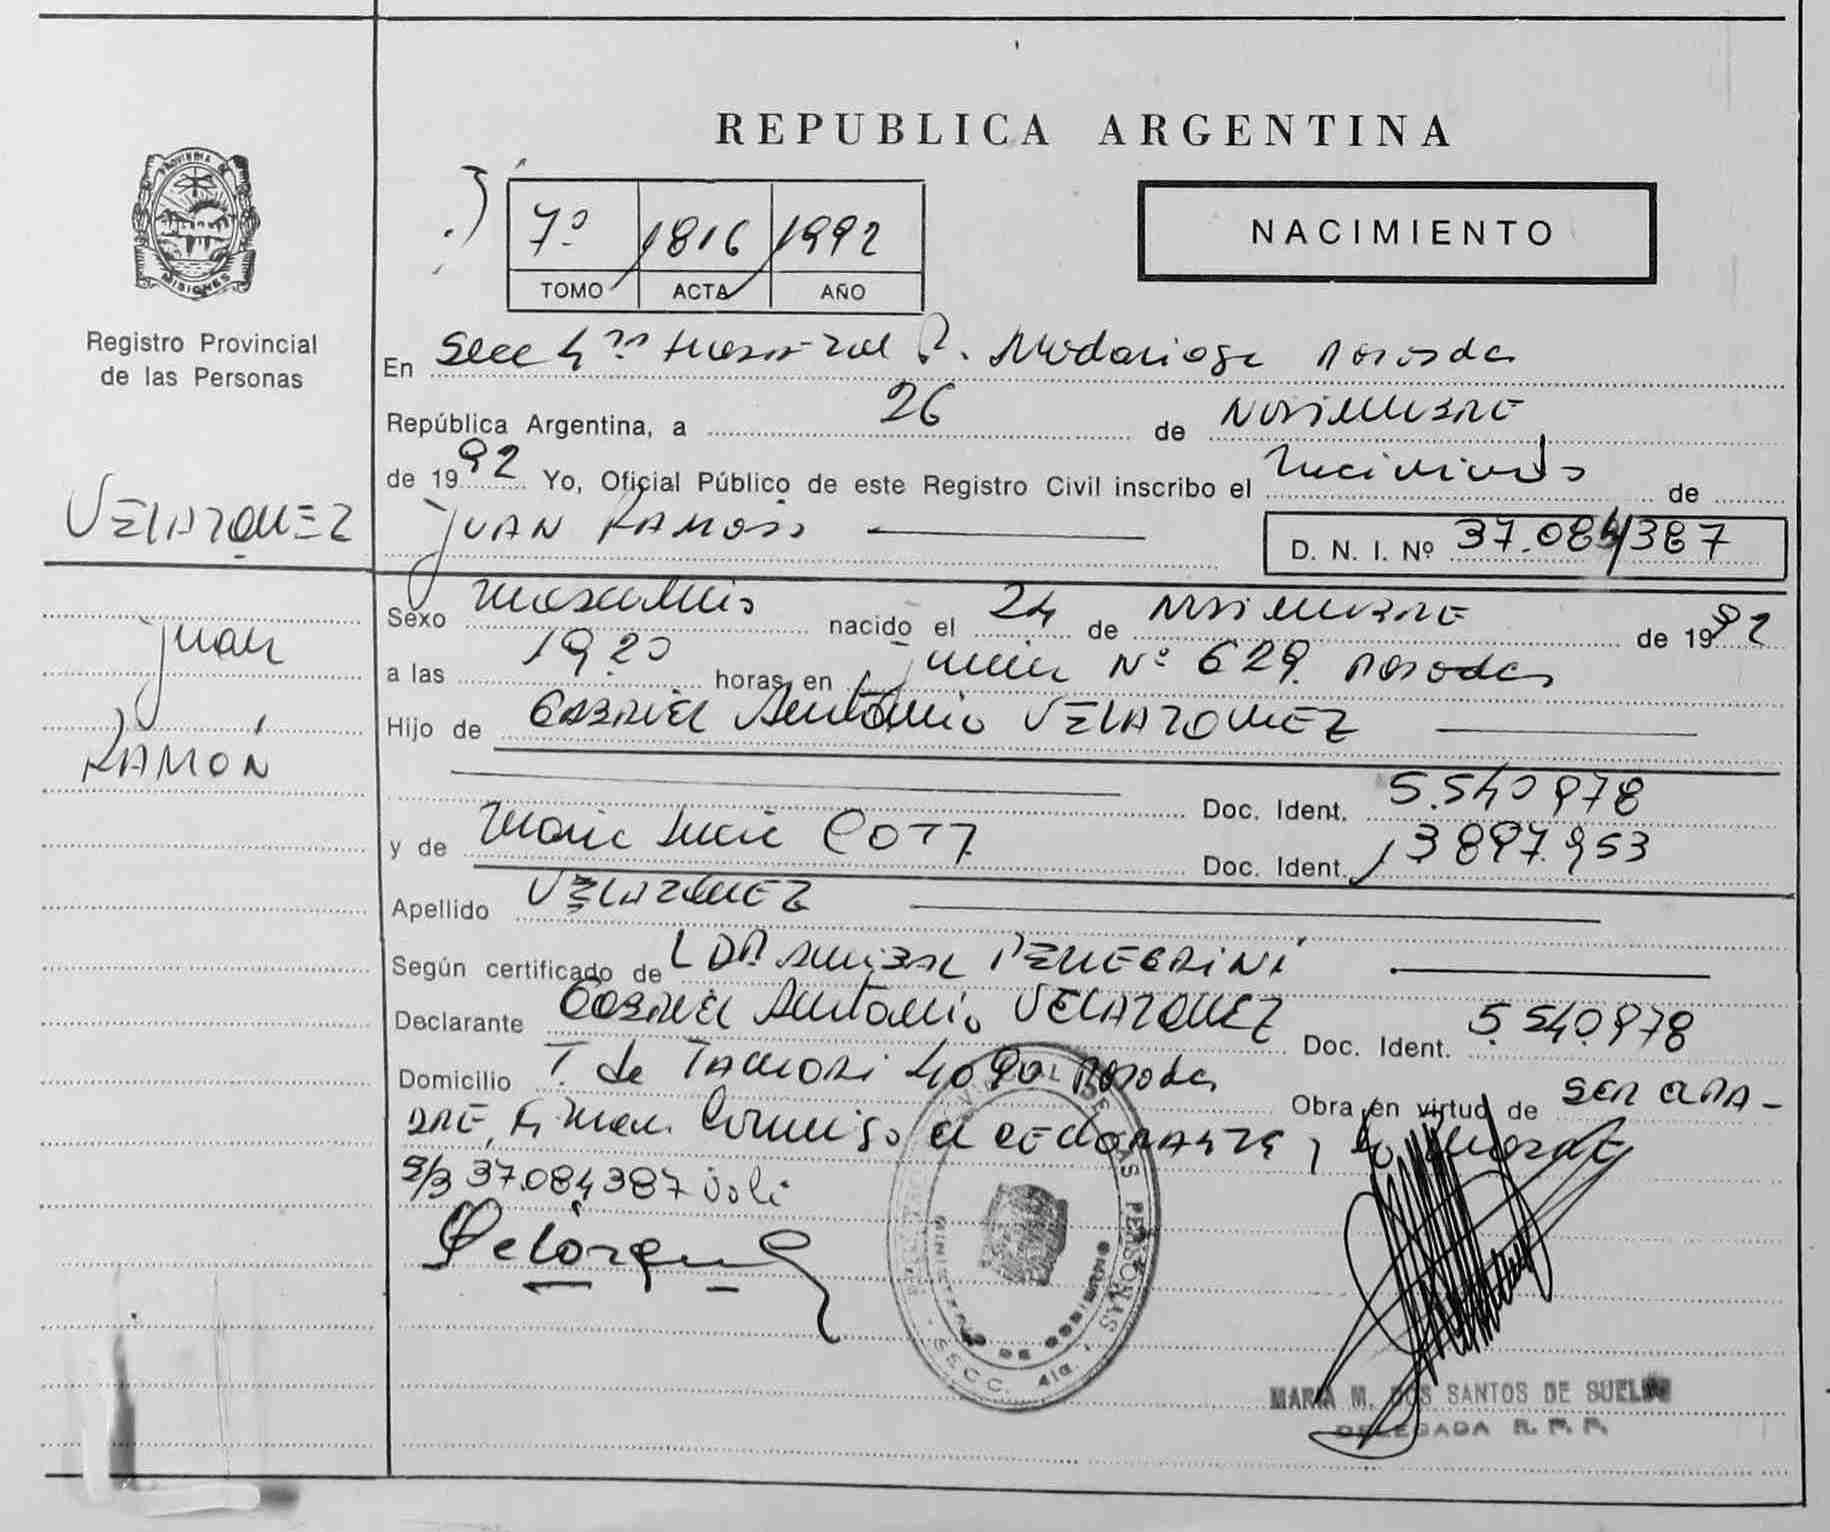 REPUBLICA ARGENTINA
PROVINCIA DE MISIONES
Registro Provincial
de las Personas
7º 1816 1992
TOMO ACTA AÑO
NACIMIENTO
En Secc 4ta R. Madariaga Posadas
República Argentina, a 26 de NOVIEMBRE
de 1992 Yo, Oficial Público de este Registro Civil inscribo el Nacimiento de
VELAZQUEZ
JUAN RAMON
D. N. I. Nº 37.084387
Juan
RAMÓN
Sexo Masculino nacido el 24 de NOVIEMBRE de 1992
a las 19,20 horas, en Junin Nº 629. Posadas
Hijo de GABRIEL Antonio VELAZQUEZ
Doc. Ident. 5.540978
y de Maria Lucia COTI Doc. Ident. 13897.953
Apellido VELAZQUEZ
Según certificado de DR ANIBAL PELLEGRINI
Declarante GABRIEL Antonio VELAZQUEZ Doc. Ident. 5.540.978
Domicilio T. de TAMORI 4090 Posadas Obra en virtud de SER EL PA-
DRE, Firman Conmigo el DECLARANTE,
S/B 37.084387 Vale
Velázquez
DE LAS PERSONAS
MINISTERIO DE GOBIERNO
SECC. 4ta.
MARIA M. DOS SANTOS DE SUELDO
DELEGADA R. P. P.